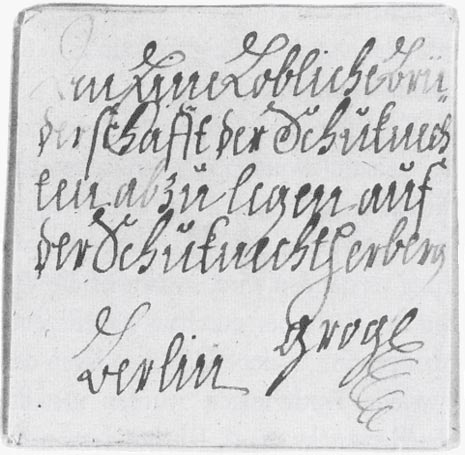 An Eine Lobliche Brü„
derschafft der Schuknech
ten abzu legen auf
der Schuknecht herberg
Berlin